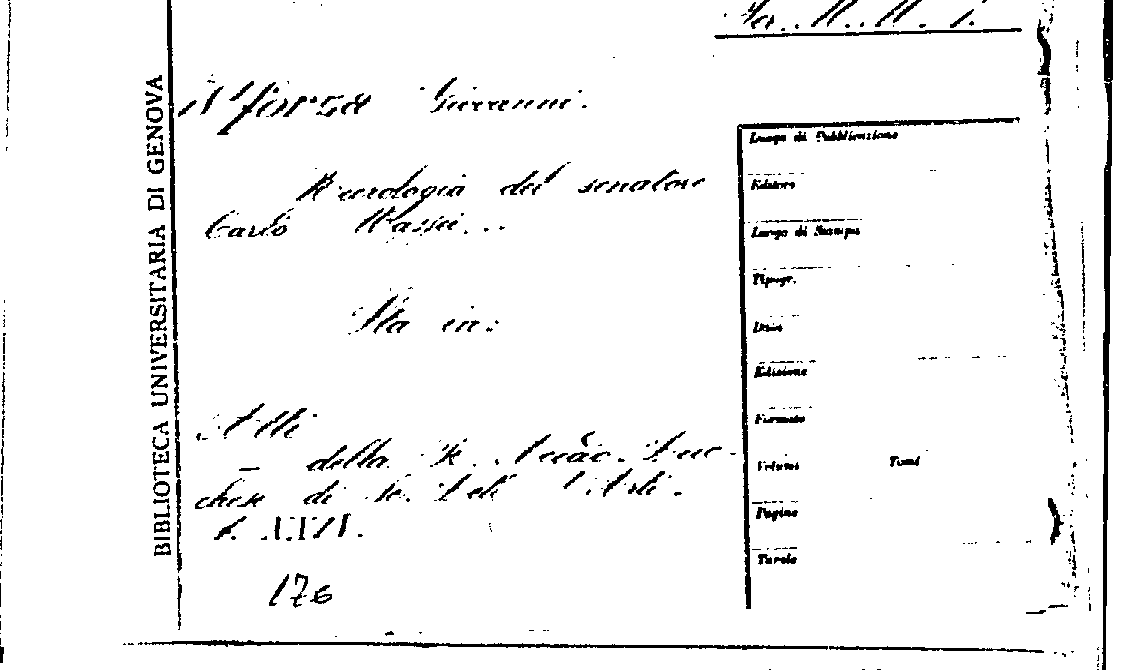 BIBLIOTECA UNIVERSITARIA DI GENOVA
Sforza Giovanni.
Necrologia del senatore
Carlo Massei...
Sta in:
Atti
della R. Accad. Luc-
chese di Sc. Lett. Arti.
t.
176
Luogo di Pubblicazione
Editore
Luogo di Stampa
Tipogr.
Data
Edizione
Formato
Volume Tomi
Pagine
Tavole